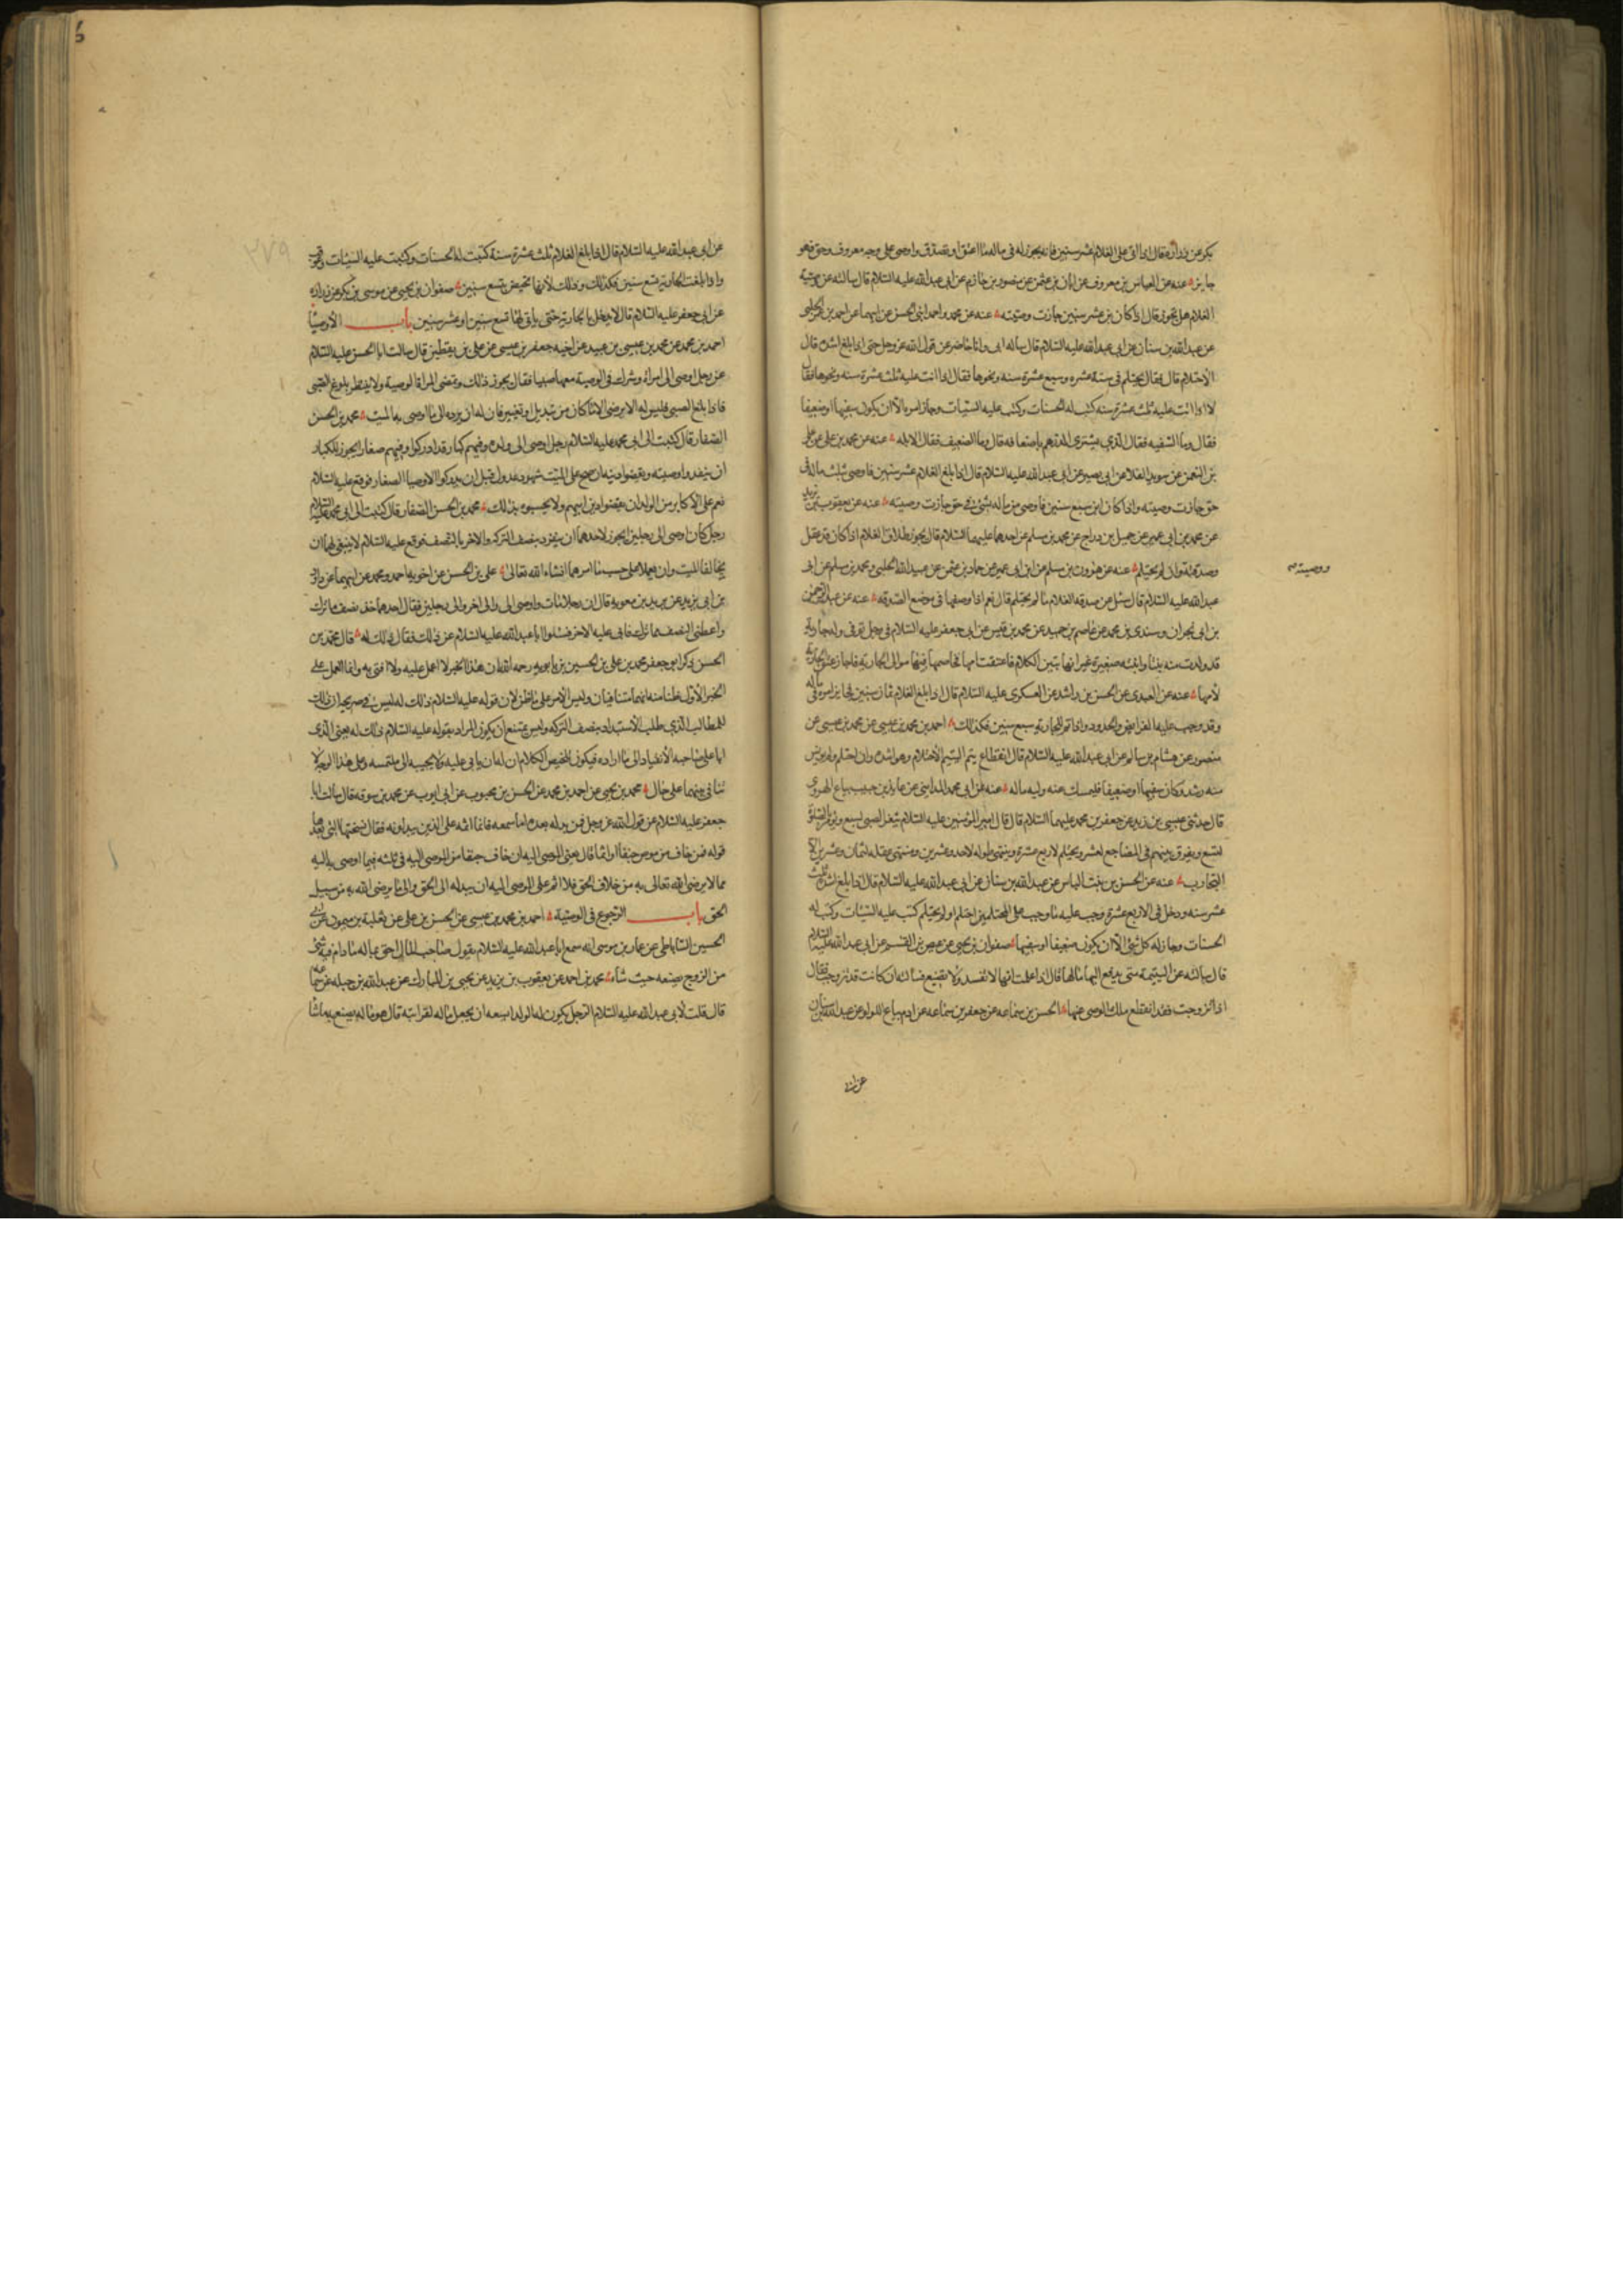 بكر عن زرارة قال اذا اتى على الغلام عشر سنين فانه يجوز له فى ماله ما اعتق او تصدق واوصى على وجه معروف وحق فهو
جايز عنه عن العباس بن معروف عن ابان بن عثمن عن منصور بن حازم عن ابى عبد الله عليه السلام قال سالته عن وصية
الغلام هل تجوز قال اذا كان بن عشر سنين جازت وصيته عنه عن محمد واحمد ابنى الحسن عن ابيهما عن احمد بن عمر الحلبى
عن عبد الله بن سنان عن ابى عبد الله عليه السلام قال ساله ابى وانا حاضر عن قول الله عز وجل حتى اذا بلغ اشده قال
الاحتلام قال فقال يحتلم فى ستة عشره وسبع عشرة سنه ونحوها فقال اذا اتت عليه ثلث عشرة سنه ونحوها فقال
لا اذا اتت عليه ثلث عشرة سنه كتب له الحسنات وكتب عليه السيئات وجاز امره الا ان يكون سفيها اوضعيفا
فقال وما السفيه فقال الذى يشترى الدرهم باضعافه قال وما الضعيف فقال الابله عنه عن محمد بن على عن على
بن النعمن عن سويد القلا عن ابى بصير عن ابى عبد الله عليه السلام قال اذا بلغ الغلام عشر سنين فاوصى بثلث ماله فى
حق جازت وصيته واذا كان ابن سبع سنين فاوصى من ماله بشئ فى حق جازت وصيته عنه عن يعقوب بن يزيد
عن محمد بن ابى عمير عن جميل بن دراج عن محمد بن مسلم عن احدهما عليهما السلام قال يجوز طلاق الغلام اذا كان قد عقل
ووصيته
وصدقته وان لم يحتلم عنه عن هرون بن مسلم عن ابن ابى عمير عن حماد بن عثمن عن عبيد الله الحلبى ومحمد بن مسلم عن ابى
عبد الله عليه السلام قال سئل عن صدقه الغلام ما لم يحتلم قال نعم اذا وضعها فى موضع الصدقه عنه عن عبد الرحمن
بن ابى نجران وسندى بن محمد عن عاصم بن حميد عن محمد بن قيس عن ابى جعفر عليه السلام فى رجل توفى وله جارية
قد ولدت منه بنتا وابنته صغيرة غير انها تبين الكلام فاعتقت امها فخاصمها فيها موالى ابى الجارية فاجاز عتق الجارية
لامها عنه عن العبدى عن الحسن بن راشد عن العسكرى عليه السلام قال اذا بلغ الغلام ثمان سنين فجايز امره فى ماله
وقد وجب عليه الفرايض والحدود واذا تم للجارية سبع سنين فكذلك احمد بن محمد بن عيسى عن محمد بن عيسى عن
منصور عن هشام بن سالم عن ابى عبد الله عليه السلام قال انقطاع يتم اليتيم الاحتلام وهو اشده وان احتلم ولم يونس
منه رشد وكان سفيها او ضعيفا فليمسك عنه وليه ماله عنه عن ابى محمد المداينى عن عايذ بن حبيب بياع الهروى
قال حدثنى عيسى بن زيد عن جعفر بن محمد عليهما السلام قال قال امير المؤمنين عليه السلام يثغر الصبى لسبع ويؤمر بالصلوة
لتسع ويفرق بينهم فى المضاجع لعشر ويحتلم لاربع عشرة وينتهى طوله لاحد وعشرين ومنتهى عقله لثمان وعشرين الا
التجارب عنه عن الحسن بن بنت الياس عن عبد الله بن سنان عن ابى عبد الله عليه السلام قال اذا بلغ اشده ثلث
عشر سنه ودخل فى الاربع عشرة وجب عليه ما وجب على المحتلمين احتلم او لم يحتلم كتب عليه السيئات وكتب له
الحسنات وجاز له كل شئ الا ان يكون ضعيفا او سفيها صفوان بن يحيى عن عيص بن القسم عن ابى عبد الله عليه السلام
قال سالته عن اليتيمة متى يدفع اليها مالها قال اذا علمت انها لا تفسد ولا تضيع فسالته ان كانت قد تزوجت فقال
اذا تزوجت فقد انقطع ملك الوصى عنها الحسن بن سماعه عن جعفر بن سماعه عن ادم بياع اللولو عن عبد الله بن سنان
عن ابى
٣٧٩
عن ابى عبد الله عليه السلام قال اذا بلغ الغلام ثلث عشرة سنة كتبت له الحسنات وكتبت عليه السيئات وعوقب
واذا بلغت الجارية تسع سنين فكذلك وذلك لانها تحيض لتسع سنين صفوان بن يحيى عن موسى بن بكر عن زراره
عن ابى جعفر عليه السلام قال لا يدخل بالجارية حتى ياتى لها تسع سنين او عشر سنين باب الاوصيا
احمد بن محمد عن محمد بن عيسى بن عبيد عن اخيه جعفر بن عيسى عن على بن يقطين قال سالت ابا الحسن عليه السلام
عن رجل اوصى الى امراة وشرك فى الوصية معها صبيا فقال يجوز ذلك وتمضى المراة الوصية ولا ينتظر بلوغ الصبى
فاذا بلغ الصبى فليس له الا يرضى الا ما كان من تبديل او تغيير فان له ان يرده الى ما اوصى به الميت محمد بن الحسن
الصفار قال كتبت الى ابى محمد عليه السلام رجل اوصى الى ولده وفيهم كبار قد ادركوا وفيهم صغار ايجوز للكبار
ان ينفذوا وصيته ويقضوا دينه لمن صح على الميت بشهود عدول قبل ان يدركوا الاوصيا الصغار فوقع عليه السلام
نعم على الاكابر من الولد ان يقضوا دين ابيهم ولا يحبسوه بذلك محمد بن الحسن الصفار قال كتبت الى ابى محمد عليه السلام
رجل كان اوصى الى رجلين ايجوز لاحدهما ان ينفرد بنصف التركه والاخر بالنصف فوقع عليه السلام لا ينبغى لهما ان
يخالفا الميت وان يعملا على حسب ما امرهما انشاء الله تعالى على بن الحسن عن اخويه احمد ومحمد عن ابيهما عن داود
بن ابى يزيد عن بريد بن معوية قال ان رجلا مات واوصى الى والى اخر والى رجلين فقال احدهما خذ نصف ما ترك
واعطنى النصف مما ترك فابى عليه الاخر فسئلوا ابا عبد الله عليه السلام عن ذلك فقال ذلك له قال محمد بن
الحسن ذكر ابو جعفر محمد بن على بن الحسين بن بابويه رحمه الله ان هذا الخبر لا اعمل عليه ولا افتى به وانما العمل على
الخبر الاول ظنا منه انهما متنافيان وليس الامر على ما ظن لان قوله عليه السلام ذلك له ليس فى صريحه ان ذلك
للمطالب الذى طلب الاستبداد بنصف التركه وليس يمتنع ان يكون المراد بقوله عليه السلام ذلك له يعنى الذى
ابا على صاحبه الانقياد الى ما اراده فيكون تلخيص الكلام ان له ان يابى عليه ولا يجيبه الى ملتمسه وعلى هذا الوجه لا
تنافى بينهما على حال محمد بن يحيى عن احمد بن محمد عن الحسن بن محبوب عن ابى ايوب عن محمد بن سوقه قال سالت ابا
جعفر عليه السلام عن قول الله عز وجل فمن بدله بعد ما سمعه فانما اثمه على الذين يبدلونه فقال نسختها التى بعدها
قوله فمن خاف من موص جنفا او اثما قال يعنى الموصى اليه ان خاف جنفا من الموصى اليه فى ثلثه فيما اوصى به اليه
مما لا يرضى الله تعالى به من خلاف الحق فلا اثم على الموصى اليه ان يبدله الى الحق والى ما يرضى الله به من سبيل
الحق باب الرجوع فى الوصية احمد بن محمد بن عيسى عن الحسن بن على عن ثعلبة بن ميمون عن ابى
الحسين الساباطى عن عمار بن موسى انه سمع ابا عبد الله عليه السلام يقول صاحب المال احق بماله ما دام فيه شئ
من الروح يضعه حيث شاء محمد بن احمد عن يعقوب بن يزيد عن يحيى بن المبارك عن عبد الله بن جبله عن سماعه
قال قلت لابى عبد الله عليه السلام الرجل يكون له الولد ايسعه ان يجعل ماله لقرابته قال هو ماله يصنع به ما شا